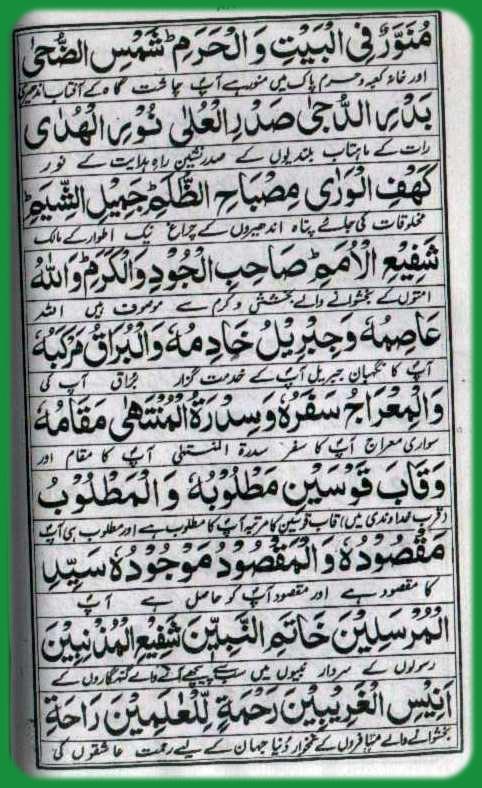 مُنَوَّرٌ فِي الْبَيْتِ وَالْحَرَمِ شَمْسِ الضُّحٰى
اور خانہ کعبہ و حرم پاک میں منور ہے آپ چاشت گاہ کے آفتاب اندھیری
بَدْرِ الدُّجٰى صَدْرِ الْعُلٰى نُوْرِ الْهُدٰى
رات کے ماہتاب بلندیوں کے صدر نشین راہ ہدایت کے نور
كَهْفِ الْوَرٰى مِصْبَاحِ الظُّلَمِ جَمِيْلِ الشِّيَمِ
مخلوقات کی جائے پناہ اندھیروں کے چراغ نیک اطوار کے مالک
شَفِيْعِ الْاُمَمِ صَاحِبِ الْجُوْدِ وَالْكَرَمِ وَاللّٰهُ
امتوں کے بخشوانے والے بخشش و کرم سے موصوف ہیں اللہ
عَاصِمُهٗ وَجِبْرِيْلُ خَادِمُهٗ وَالْبُرَاقُ مَرْكَبُهٗ
آپ کا نگہبان جبریل آپ کے خدمت گزار براق آپ کی
وَالْمِعْرَاجُ سَفَرُهٗ وَسِدْرَةُ الْمُنْتَهٰى مَقَامُهٗ
سواری معراج آپ کا سفر سدرۃ المنتہٰی آپ کا مقام اور
وَقَابَ قَوْسَيْنِ مَطْلُوْبُهٗ وَالْمَطْلُوْبُ
(قرب خداوندی میں) قاب قوسین کا مرتبہ آپ کا مطلوب ہے اور مطلوب ہی آپ
مَقْصُوْدُهٗ وَالْمَقْصُوْدُ مَوْجُوْدُهٗ سَيِّدِ
کا مقصود ہے اور مقصود آپ کو حاصل ہے آپ
الْمُرْسَلِيْنَ خَاتِمِ النَّبِيّٖنَ شَفِيْعِ الْمُذْنِبِيْنَ
رسولوں کے سردار نبیوں میں سب سے پیچھے آنے والے گنہگاروں کے
اَنِيْسِ الْغَرِيْبِيْنَ رَحْمَةٍ لِّلْعٰلَمِيْنَ رَاحَةِ
بخشوانے والے مسافروں کے غمخوار دنیا جہان کے لیے رحمت عاشقوں کی